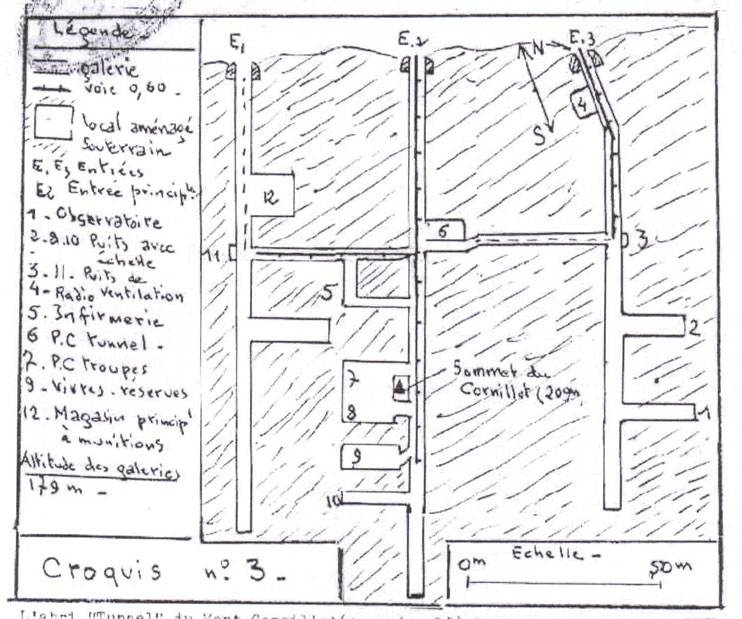 Légende
galerie
voie 0,60.
local aménagé
souterrain
E, E3 Entrées
E2 Entrée princip^le
1. Observatoire
2.8.10 Puits avec
échelle
3. 11. Puits de
4- Radio ventilation
5. Infirmerie
6 P.C tunnel.
7. P.C troupes
9. Vivres. réserves
12. Magasin princip^l
à munitions
Altitude des galeries
179 m -
E,
E.2
E.3
N
S
4
12
6
3
11
5
2
7
Sommet du
Cornillet (209m
8
1
9
10
Croquis n° 3 -
Echelle -
0m 50m
L'abri "Tunnel" du Mont Cornillet